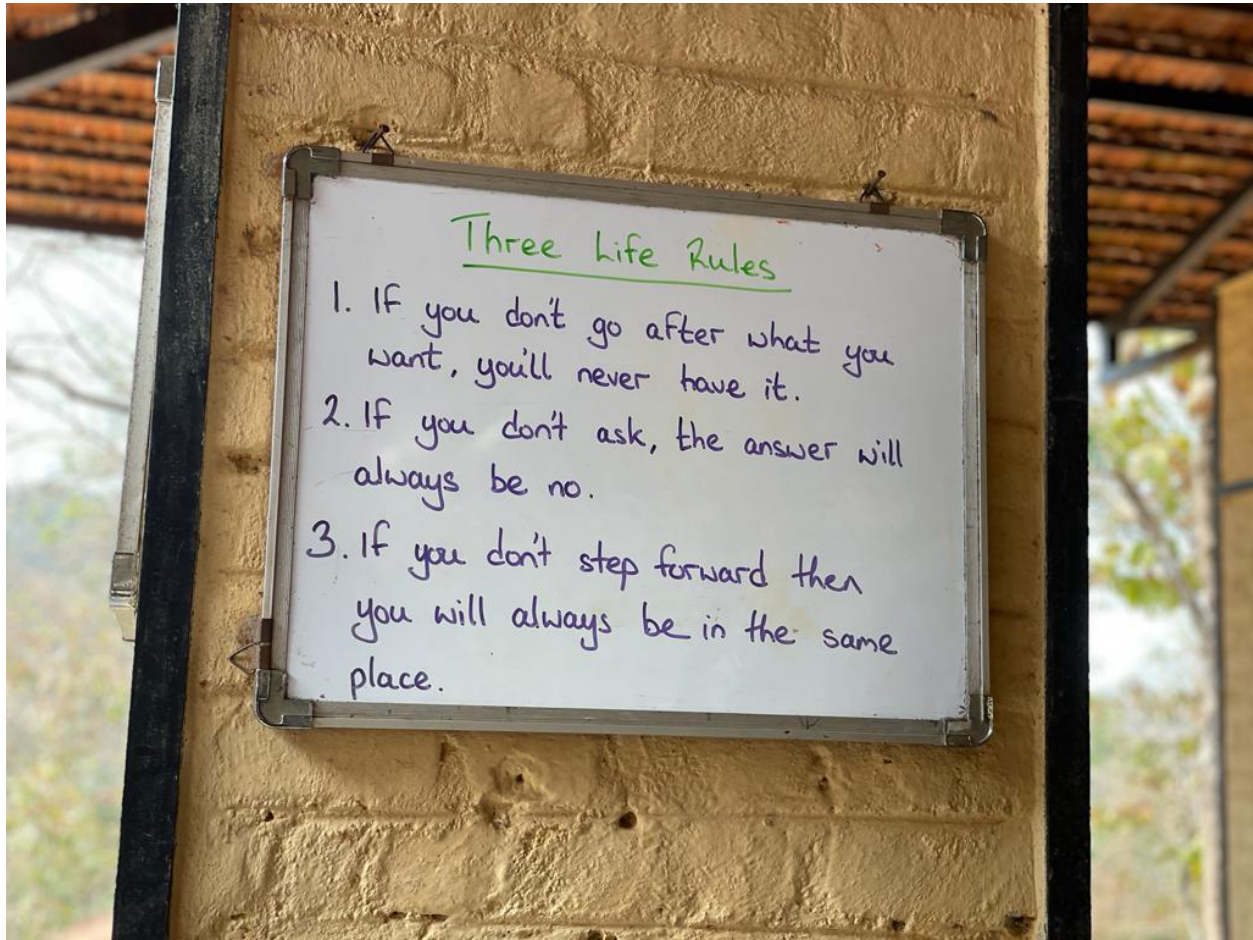 Three Life Rules
1. If you don't go after what you
want, you'll never have it.
2. If you don't ask, the answer will
always be no.
3. If you don't step forward then
you will always be in the same
place.